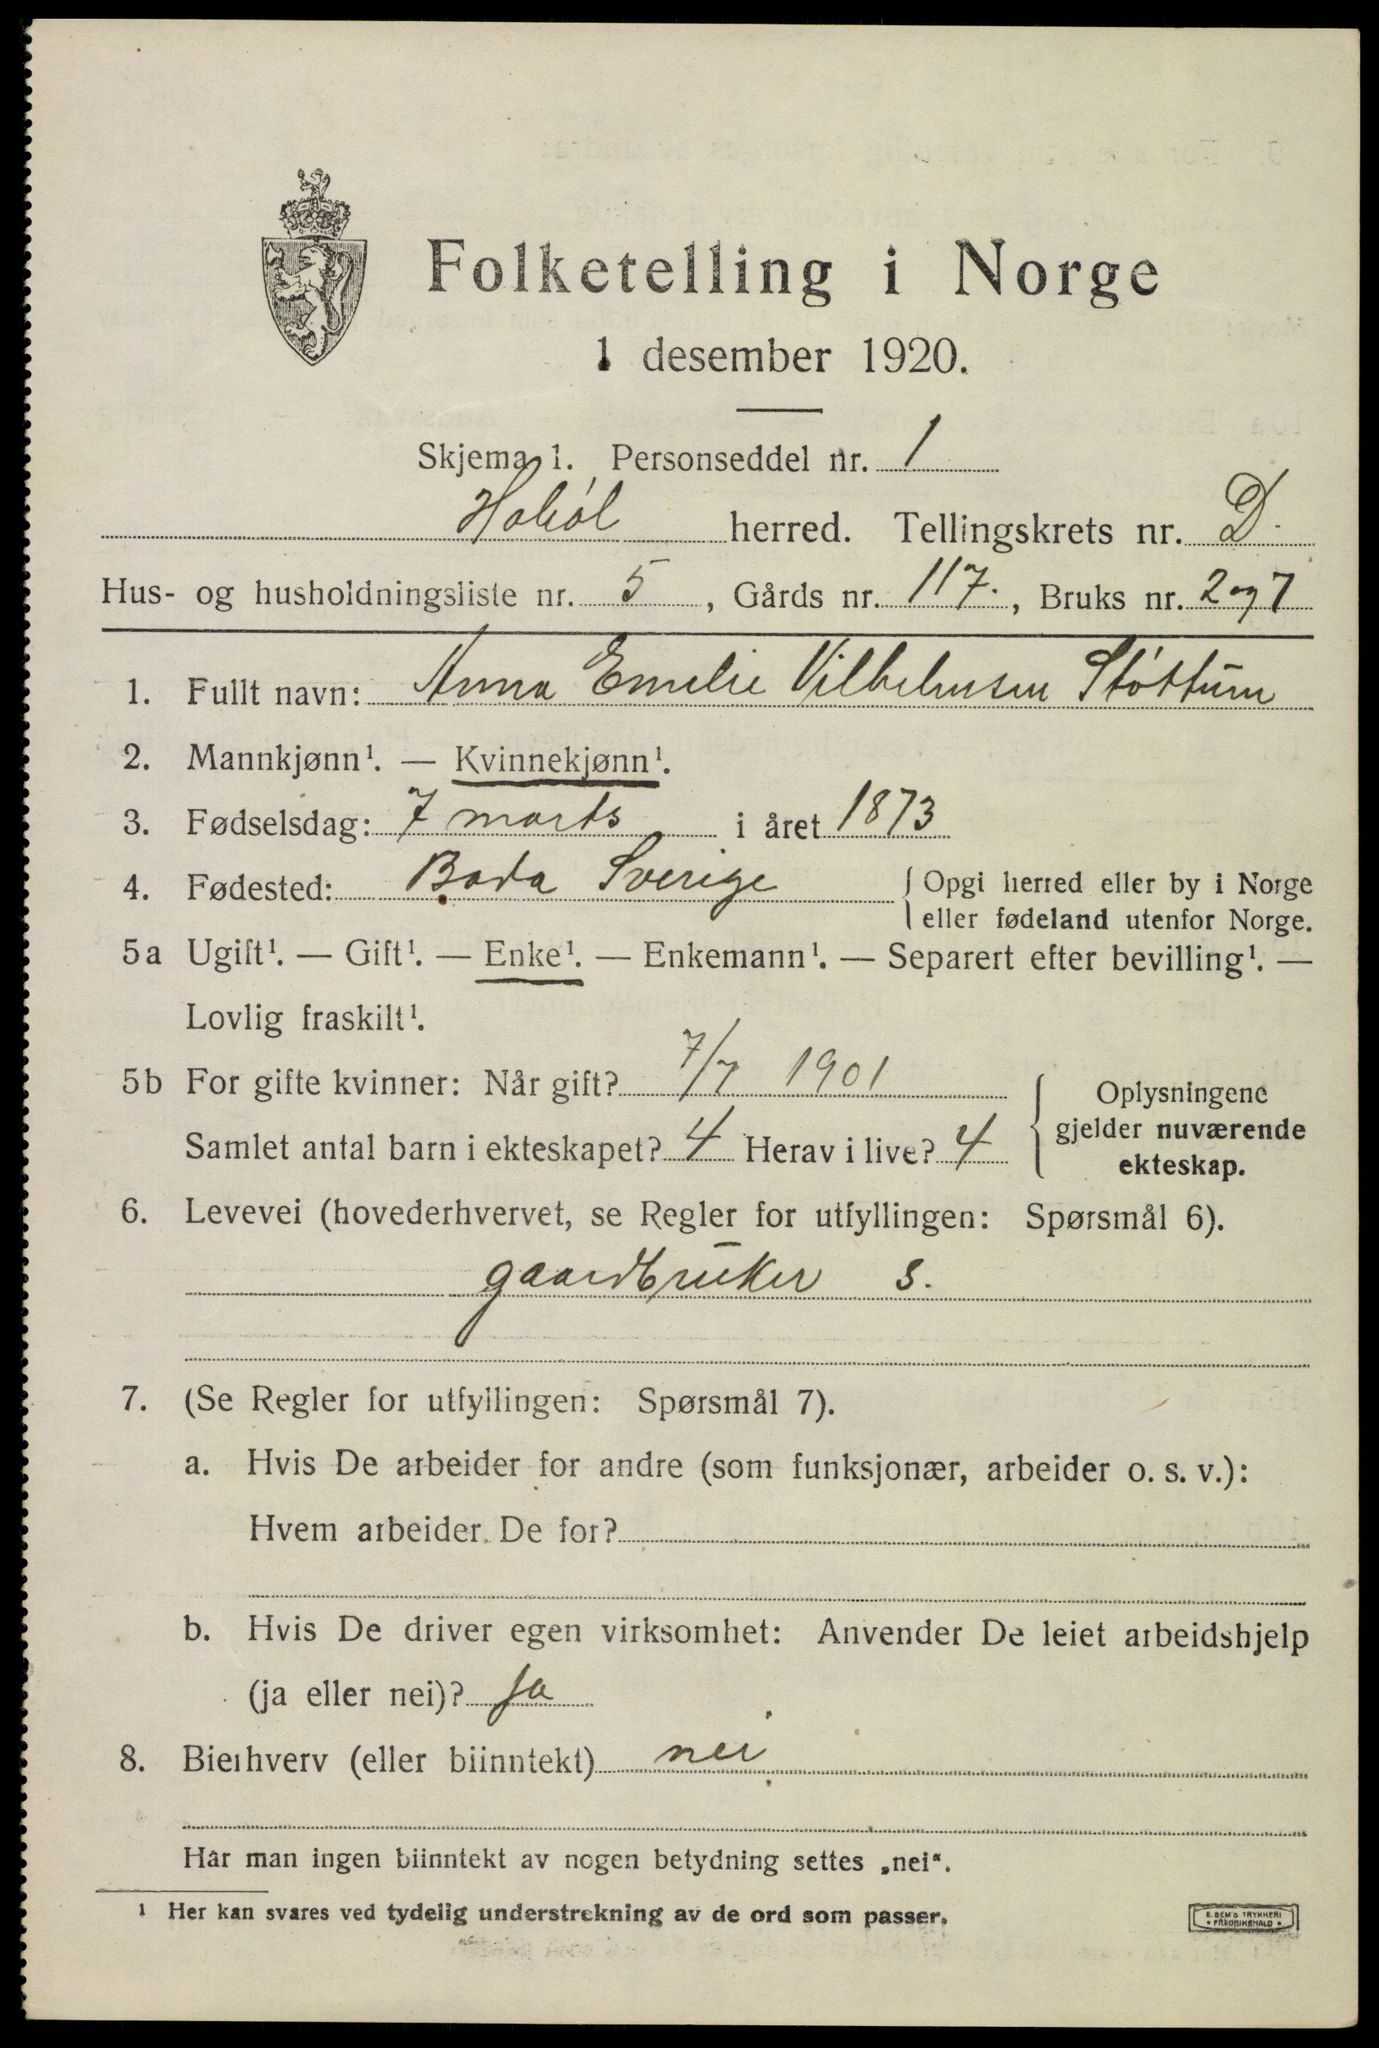 Folketelling i Norge
1 desember 1920.
Skjema 1. Personseddel nr. 1
Hobøl herred. Tellingskrets nr. D.
Hus- og husholdningsliste nr. 5, Gårds nr. 117., Bruks nr. 2 og 7
1. Fullt navn: Anna Emelie Vilhelmsen Støttum
2. Mannkjønn¹. — Kvinnekjønn¹.
3. Fødselsdag: 7 marts i året 1873
4. Fødested: Boda Sverige { Opgi herred eller by i Norge
eller fødeland utenfor Norge.
5a Ugift¹. — Gift¹. — Enke¹. — Enkemann¹. — Separert efter bevilling¹. —
Lovlig fraskilt¹.
5b For gifte kvinner: Når gift? 7/7 1901
Samlet antal barn i ekteskapet? 4 Herav i live? 4
Oplysningene
gjelder nuværende
ekteskap.
6. Levevei (hovederhvervet, se Regler for utfyllingen: Spørsmål 6).
gaardbruker s.
7. (Se Regler for utfyllingen: Spørsmål 7).
a. Hvis De arbeider for andre (som funksjonær, arbeider o. s. v.):
Hvem arbeider De for?
b. Hvis De driver egen virksomhet: Anvender De leiet arbeidshjelp
(ja eller nei)? ja
8. Bierhverv (eller biinntekt) nei
Har man ingen biinntekt av nogen betydning settes „nei“.
¹ Her kan svares ved tydelig understrekning av de ord som passer.
E. SEM'S TRYKKERI
FREDRIKSHALD